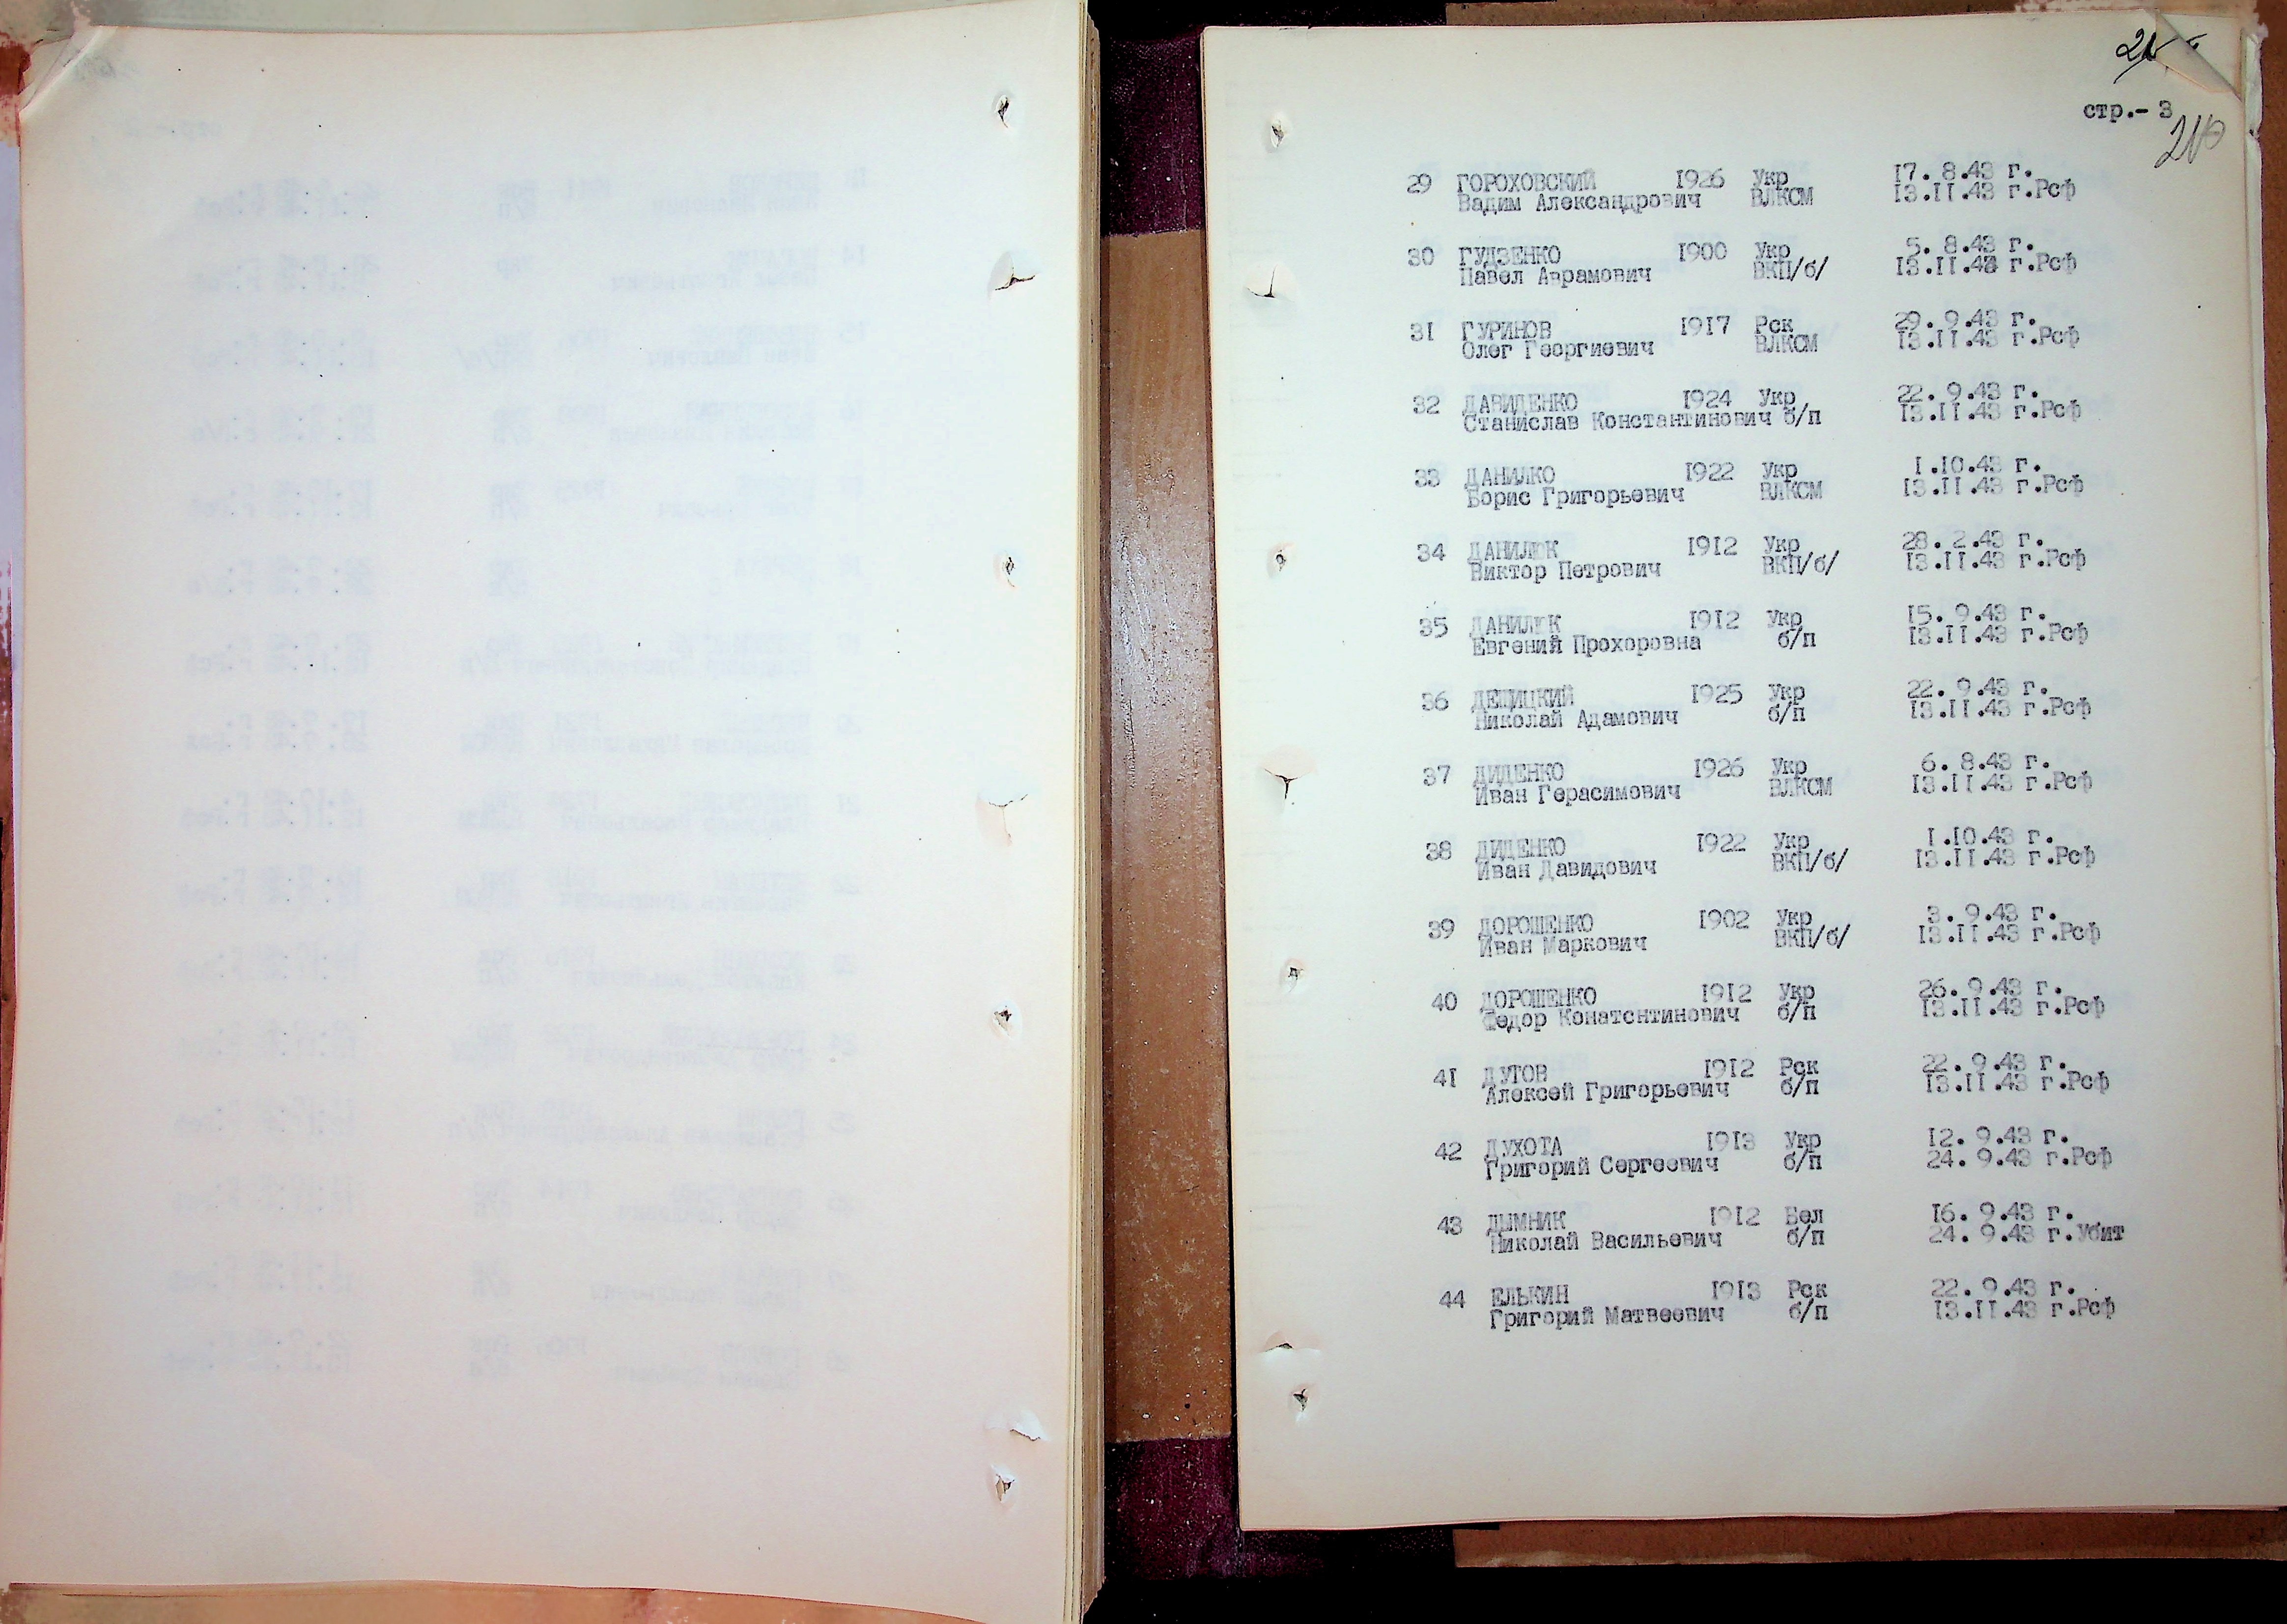 стр.- 3
210
29 ГОРОХОВСКИЙ 1926 Укр 17. 8.43 г.
Вадим Александрович ВЛКСМ 13.II.43 г.Рсф
30 ГУДЗЕНКО 1900 Укр 5. 8.43 г.
Павел Аврамович ВКП/б/ 13.II.43 г.Рсф
31 ГУРИНОВ 1917 Рск 29. 9.43 г.
Олег Георгиевич ВЛКСМ 13.II.43 г.Рсф
32 ДАВИДЕНКО 1924 Укр 22. 9.43 г.
Станислав Константинович б/п 13.II.43 г.Рсф
33 ДАНИЛКО 1922 Укр I.10.43 г.
Борис Григорьевич ВЛКСМ 13.II.43 г.Рсф
34 ДАНИЛЮК 1912 Укр 28. 2.43 г.
Виктор Петрович ВКП/б/ 13.II.43 г.Рсф
35 ДАНИЛЮК 1912 Укр 15. 9.43 г.
Евгений Прохоровна б/п 13.II.43 г.Рсф
36 ДЕЩИЦКИЙ 1925 Укр 22. 9.43 г.
Николай Адамович б/п 13.II.43 г.Рсф
37 ДИДЕНКО 1926 Укр 6. 8.43 г.
Иван Герасимович ВЛКСМ 13.II.43 г.Рсф
38 ДИДЕНКО 1922 Укр I.10.43 г.
Иван Давидович ВКП/б/ 13.II.43 г.Рсф
39 ДОРОШЕНКО 1902 Укр 3. 9.43 г.
Иван Маркович ВКП/б/ 13.II.43 г.Рсф
40 ДОРОШЕНКО 1912 Укр 26. 9.43 г.
Федор Конатснтинович б/п 13.II.43 г.Рсф
41 ДУТОВ 1912 Рск 22. 9.43 г.
Алексей Григорьевич б/п 13.II.43 г.Рсф
42 ДУХОТА 1913 Укр 12. 9.43 г.
Григорий Сергеевич б/п 24. 9.43 г.Рсф
43 ДЫМНИК 1912 Бел 16. 9.43 г.
Николай Васильевич б/п 24. 9.43 г.Убит
44 ЕЛЬКИН 1913 Рск 22. 9.43 г.
Григорий Матвеевич б/п 13.II.43 г.Рсф